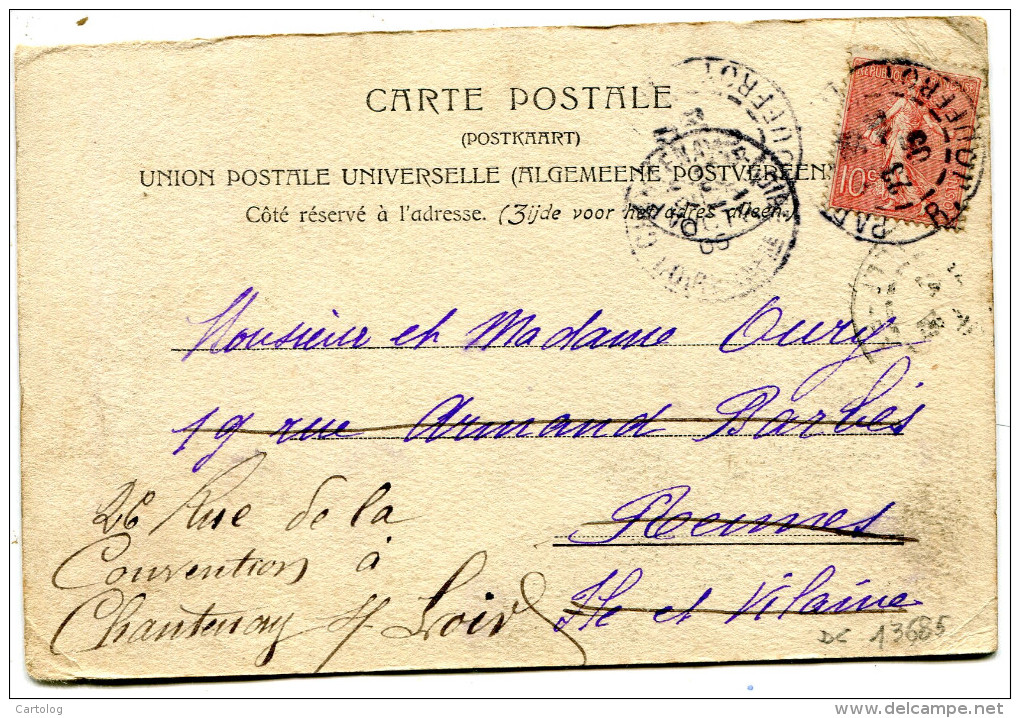 CARTE POSTALE
(POSTKAART)
UNION POSTALE UNIVERSELLE (ALGEMEENE POSTVEREEN)
Côté réservé à l'adresse. (Zijde voor het adres alleen.)
REPUBLIQUE
10c
Monsieur et Madame Oury
19 rue Armand Barbès
Rennes
Ile et Vilaine
26 Rue de la
Convention à
Chantenay s/ Loire
DC 13685
Cartolog
www.delcampe.net